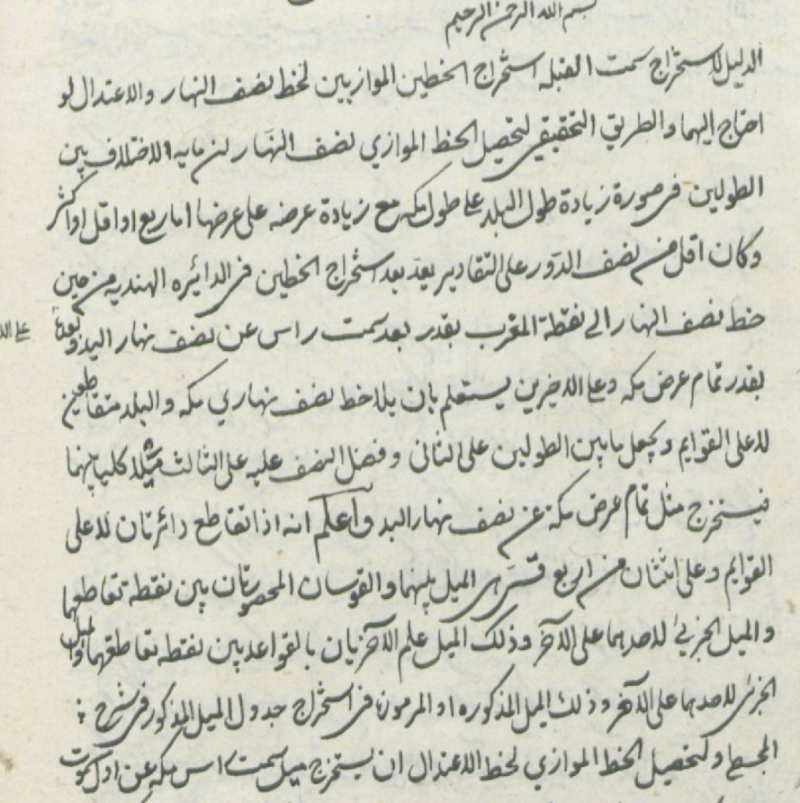 بسم الله الرحمن الرحيم
الدليل لاستخراج سمت القبله استخراج الخطين الموازيين لخط نصف النهار والاعتدال لو
احتاج اليهما والطريق التحقيقي لتحصيل الخط الموازي لنصف النهار لن مابه الاختلاف بين
الطولين في صورة زيادة طول البلد على طول مكه مع زيادة عرضه على عرضها اما ربع او اقل او اكثر
وكان اقل من نصف الدور على التقادير بعد استخراج الخطين في الدائره الهنديه من حين
خط نصف النهار الى نقطة المغرب بقدر بعد سمت راس عن نصف نهار البلد
بقدر تمام عرض مكه وعلى الاخيرين يستعلم بان يلاحظ نصف نهاري مكه والبلد متقاطعين
لا على القوايم ويجعل ما بين الطولين على الثاني وفضل النصف عليه على الثالث ميلا كليا بينهما
فيستخرج مثل تمام عرض مكة عن نصف نهار البلد واعلم انه اذا تقاطع دائرتان لا على
القوايم وعلى اثنتان من اربع قسي الميل بينهما والقوسان المحصورتان بين نقطة تقاطعهما
والميل الجزئي لاحدهما على الآخر وذلك الميل علم الآخريان بالقواعد بين نقطه تقاطعهما والميل
الجزئي لاحدهما على الآخر وذلك الميل المذكوره او المرموز في استخراج جدول الميل المذكور في شرح
المجسطي ولتحصيل الخط الموازي لخط الاعتدال ان يستخرج ميل سمت راس مكه عن اول سموت